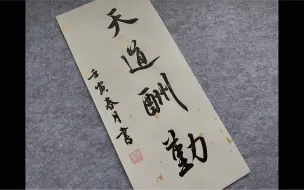 天道酬勤
壬寅春月書